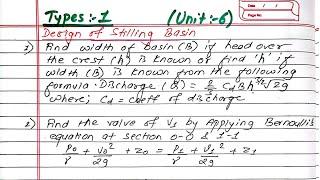 Date / /
Page No.
Types :- 1 (Unit :- 6)
Design of Stilling Basin
1) Find width of basin (B) if head over
the crest (h) is known or find 'h' if
width (B) is known from the following
formula. Discharge (Q) = 2/3 Cd B h^3/2 √2g
where; Cd = coeff of discharge
2) Find the value of V1 by Applying Bernoulli's
equation at section 0-0 & 1-1
P0/γ + V0²/2g + Z0 = P1/γ + V1²/2g + Z1